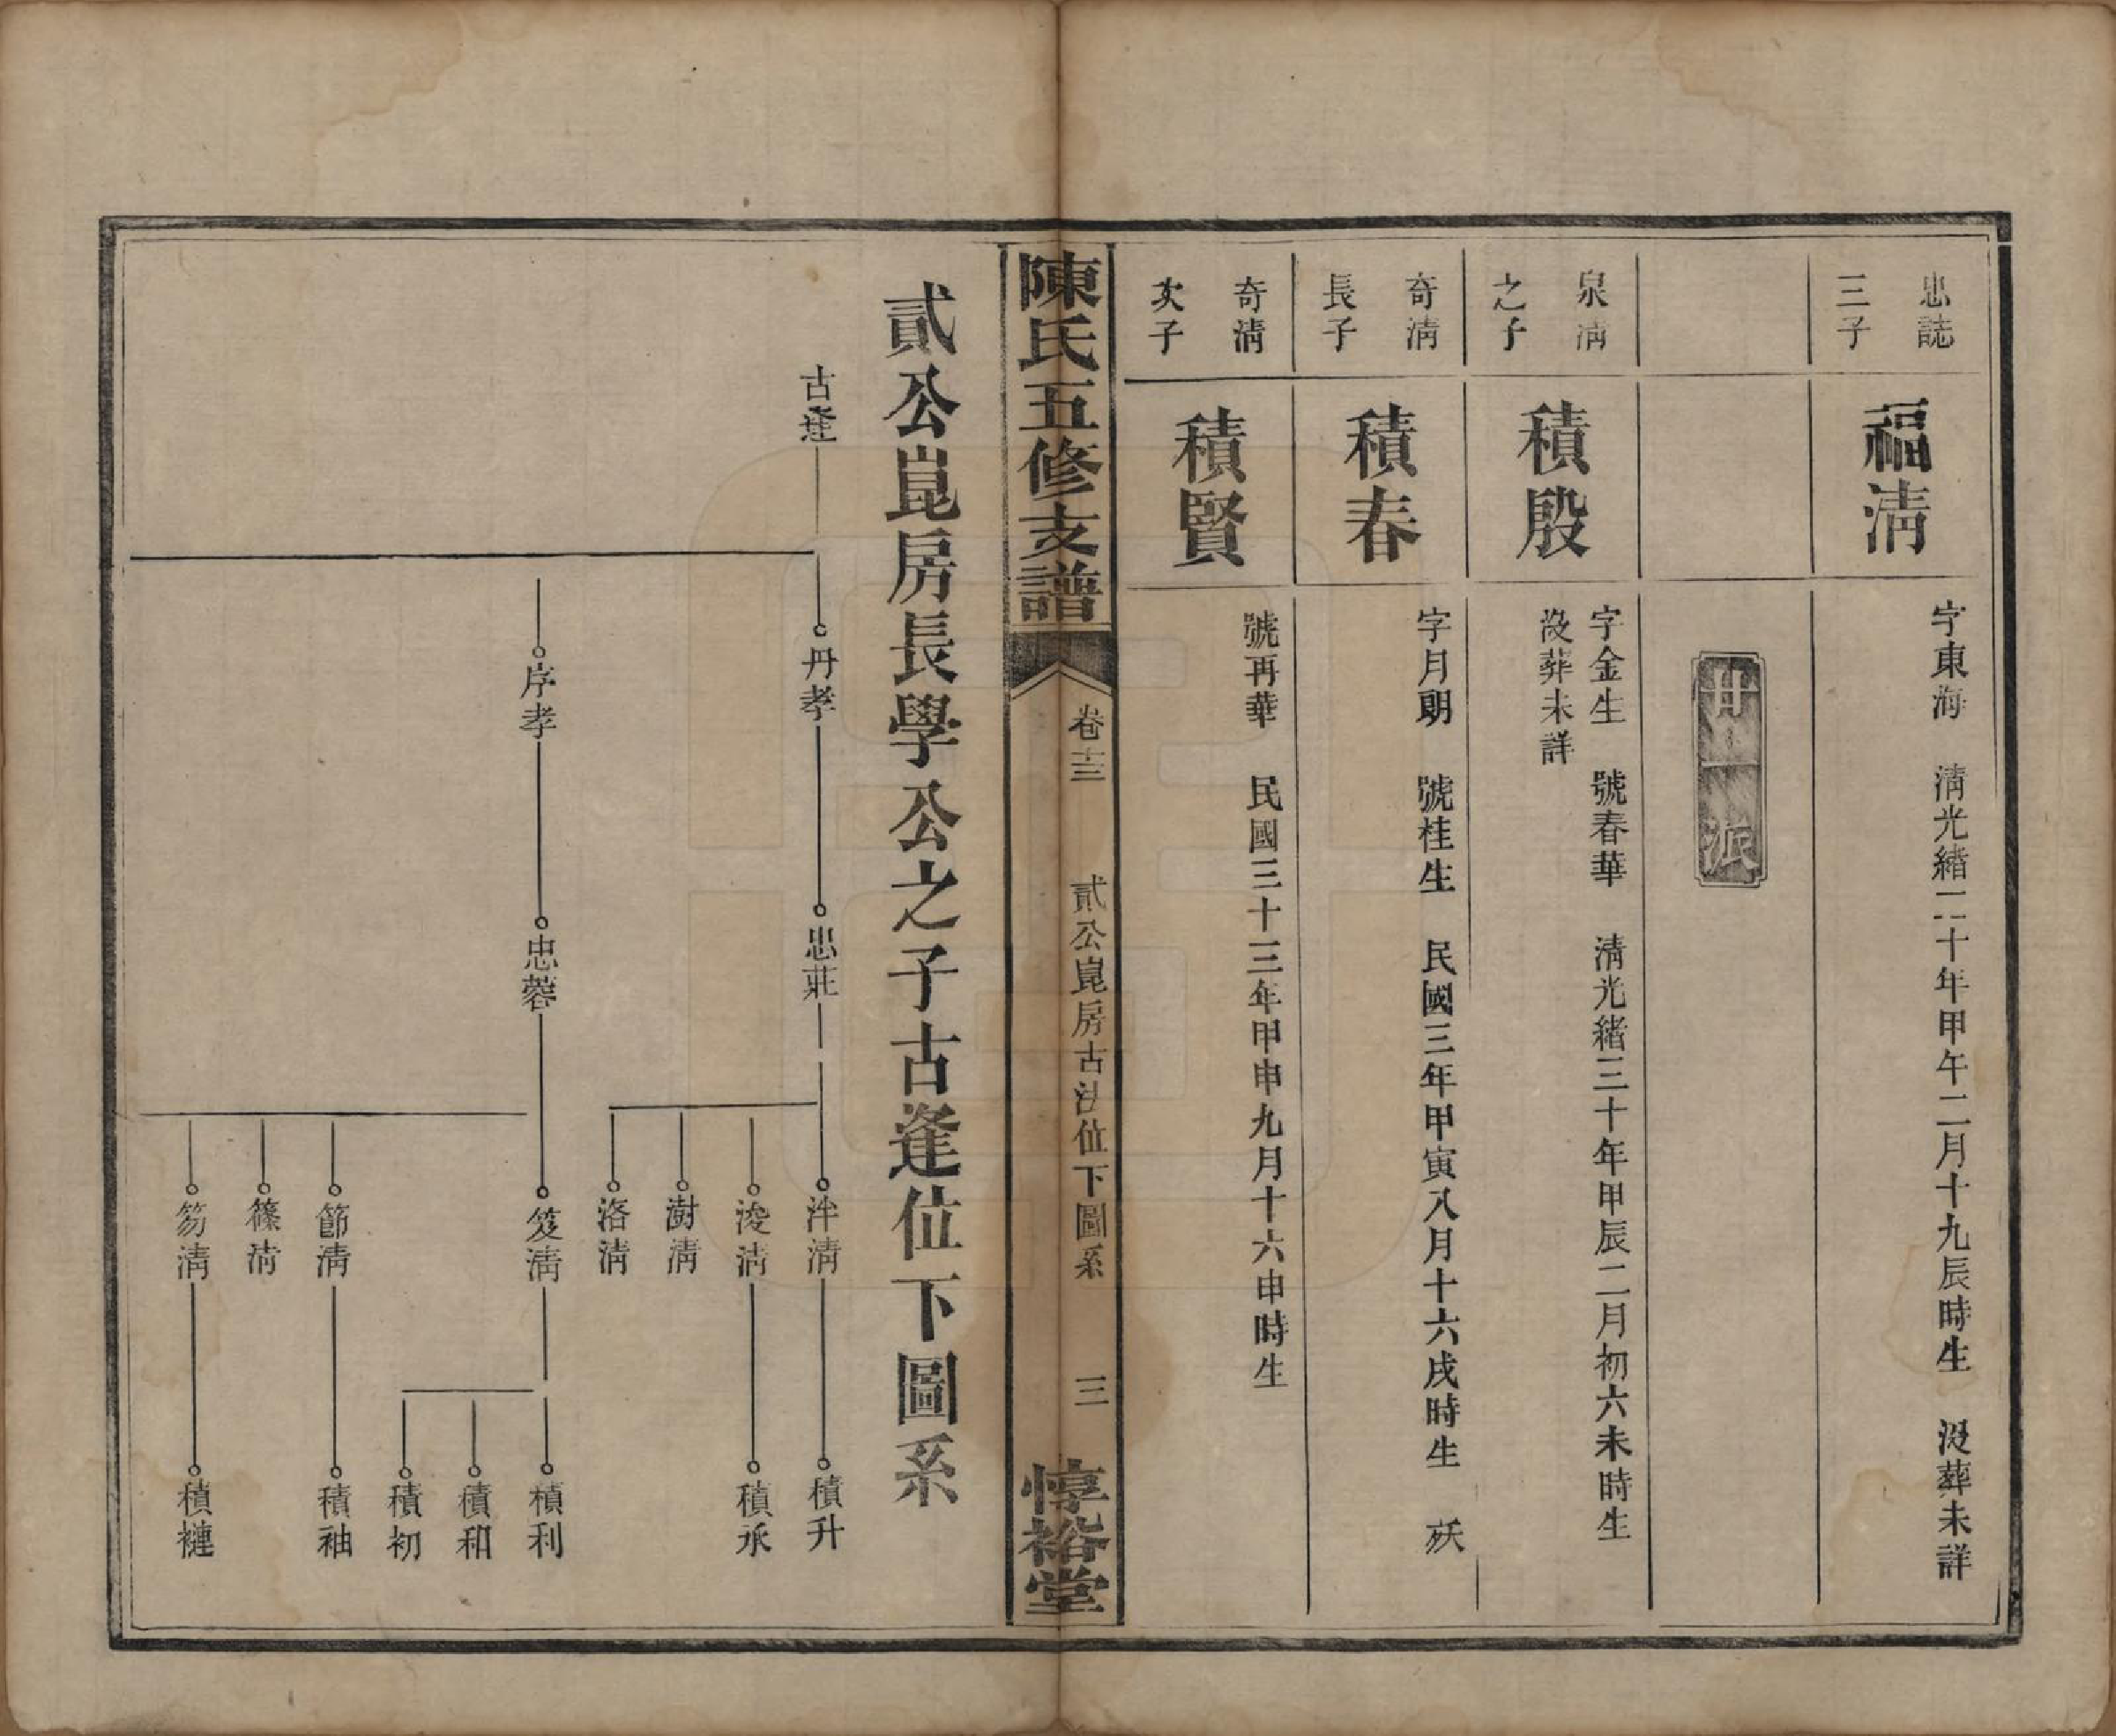 忠誌
三子
福淸
字東海　淸光緒二十年甲午二月十九辰時生　沒葬未詳
廿一派
泉淸
之子
積殷
字金生　號春華　淸光緒三十年甲辰二月初六未時生
沒葬未詳
奇淸
長子
積春
字月朗　號桂生　民國三年甲寅八月十六戌時生　殀
奇淸
次子
積賢
號再華　民國三十三年甲申九月十六申時生
陳氏五修支譜
卷十三
貳公崑房古法位下圖系
三
惇裕堂
貳公崑房長學公之子古逢位下圖系
古逢
丹孝
序孝
忠莊
忠蓉
泮淸
浚淸
澍淸
洛淸
笈淸
節淸
篠淸
笏淸
積升
積承
積利
積和
積初
積袖
積褳